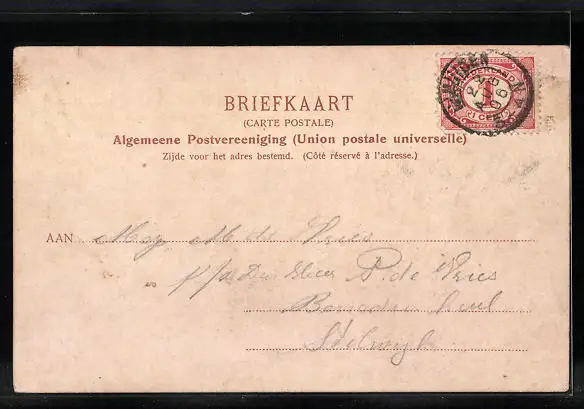 BRIEFKAART
(CARTE POSTALE)
Algemeene Postvereeniging (Union postale universelle)
Zijde voor het adres bestemd. (Côté réservé à l'adresse.)
NEDERLAND
1
1 CENT
AAN Mej. M. de Vries
p/a Den Heer P. de Vries